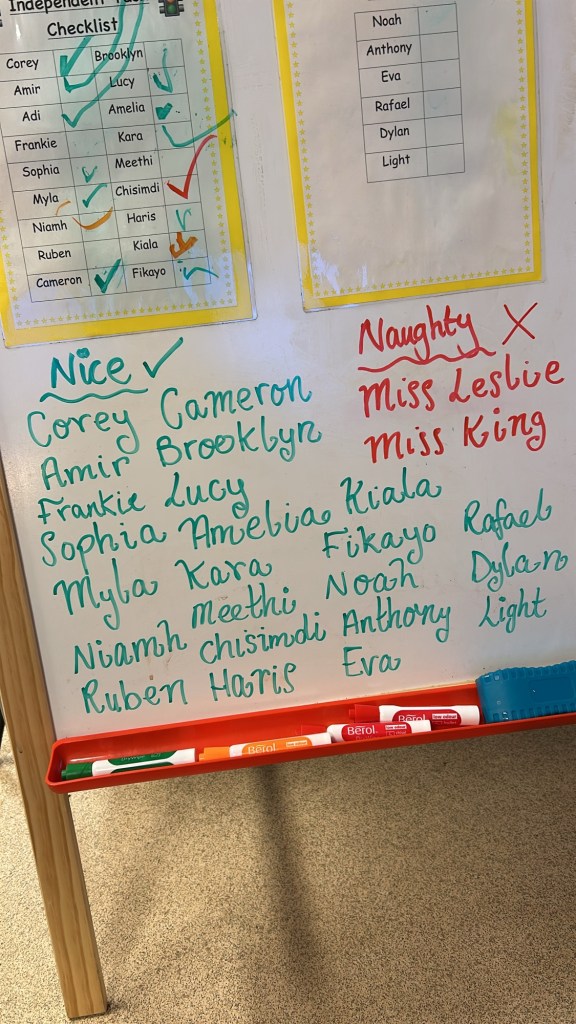 Independent Task
Checklist
Corey Brooklyn
Amir Lucy
Adi Amelia
Frankie Kara
Sophia Meethi
Myla Chisimdi
Niamh Haris
Ruben Kiala
Cameron Fikayo
Noah
Anthony
Eva
Rafael
Dylan
Light
Nice ✓
Corey Cameron
Amir Brooklyn
Frankie Lucy
Sophia Amelia Kiala
Myla Kara Fikayo Rafael
Niamh Meethi Noah Dylan
Chisimdi Anthony Light
Ruben Haris Eva
Naughty X
Miss Leslie
Miss King
Berol
Berol
Berol